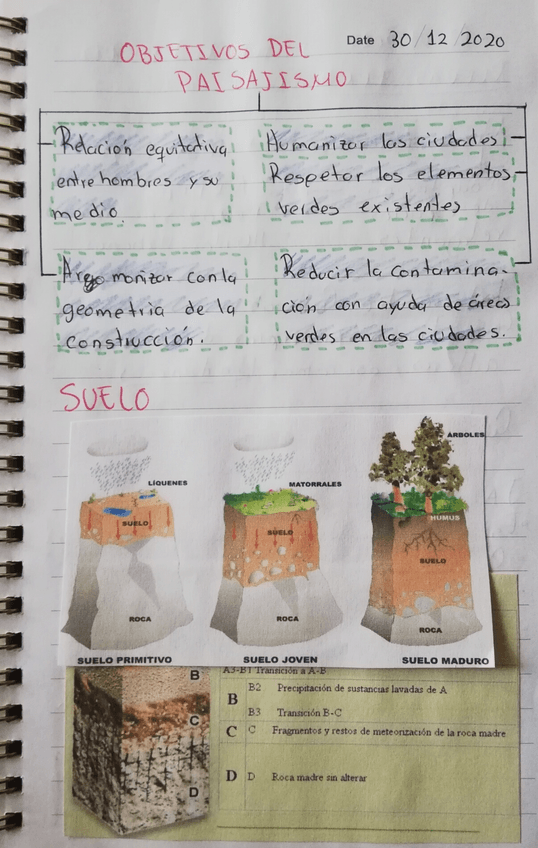 Date 30/12/2020
OBJETIVOS DEL
PAISAJISMO
Relación equitativa
entre hombres y su
medio.
Humanizar las ciudades
Respetar los elementos
verdes existentes
Argomonizar con la
geometria de la
construcción.
Reducir la contamina-
ción con ayuda de áreas
verdes en las ciudades.
SUELO
LÍQUENES
SUELO
ROCA
SUELO PRIMITIVO
MATORRALES
SUELO
ROCA
SUELO JOVEN
ÁRBOLES
HUMUS
SUELO
ROCA
SUELO MADURO
B
C
D
A3-B1 Transición a A-B
B
B2 Precipitación de sustancias lavadas de A
B3 Transición B-C
C C Fragmentos y restos de meteorización de la roca madre
D D Roca madre sin alterar